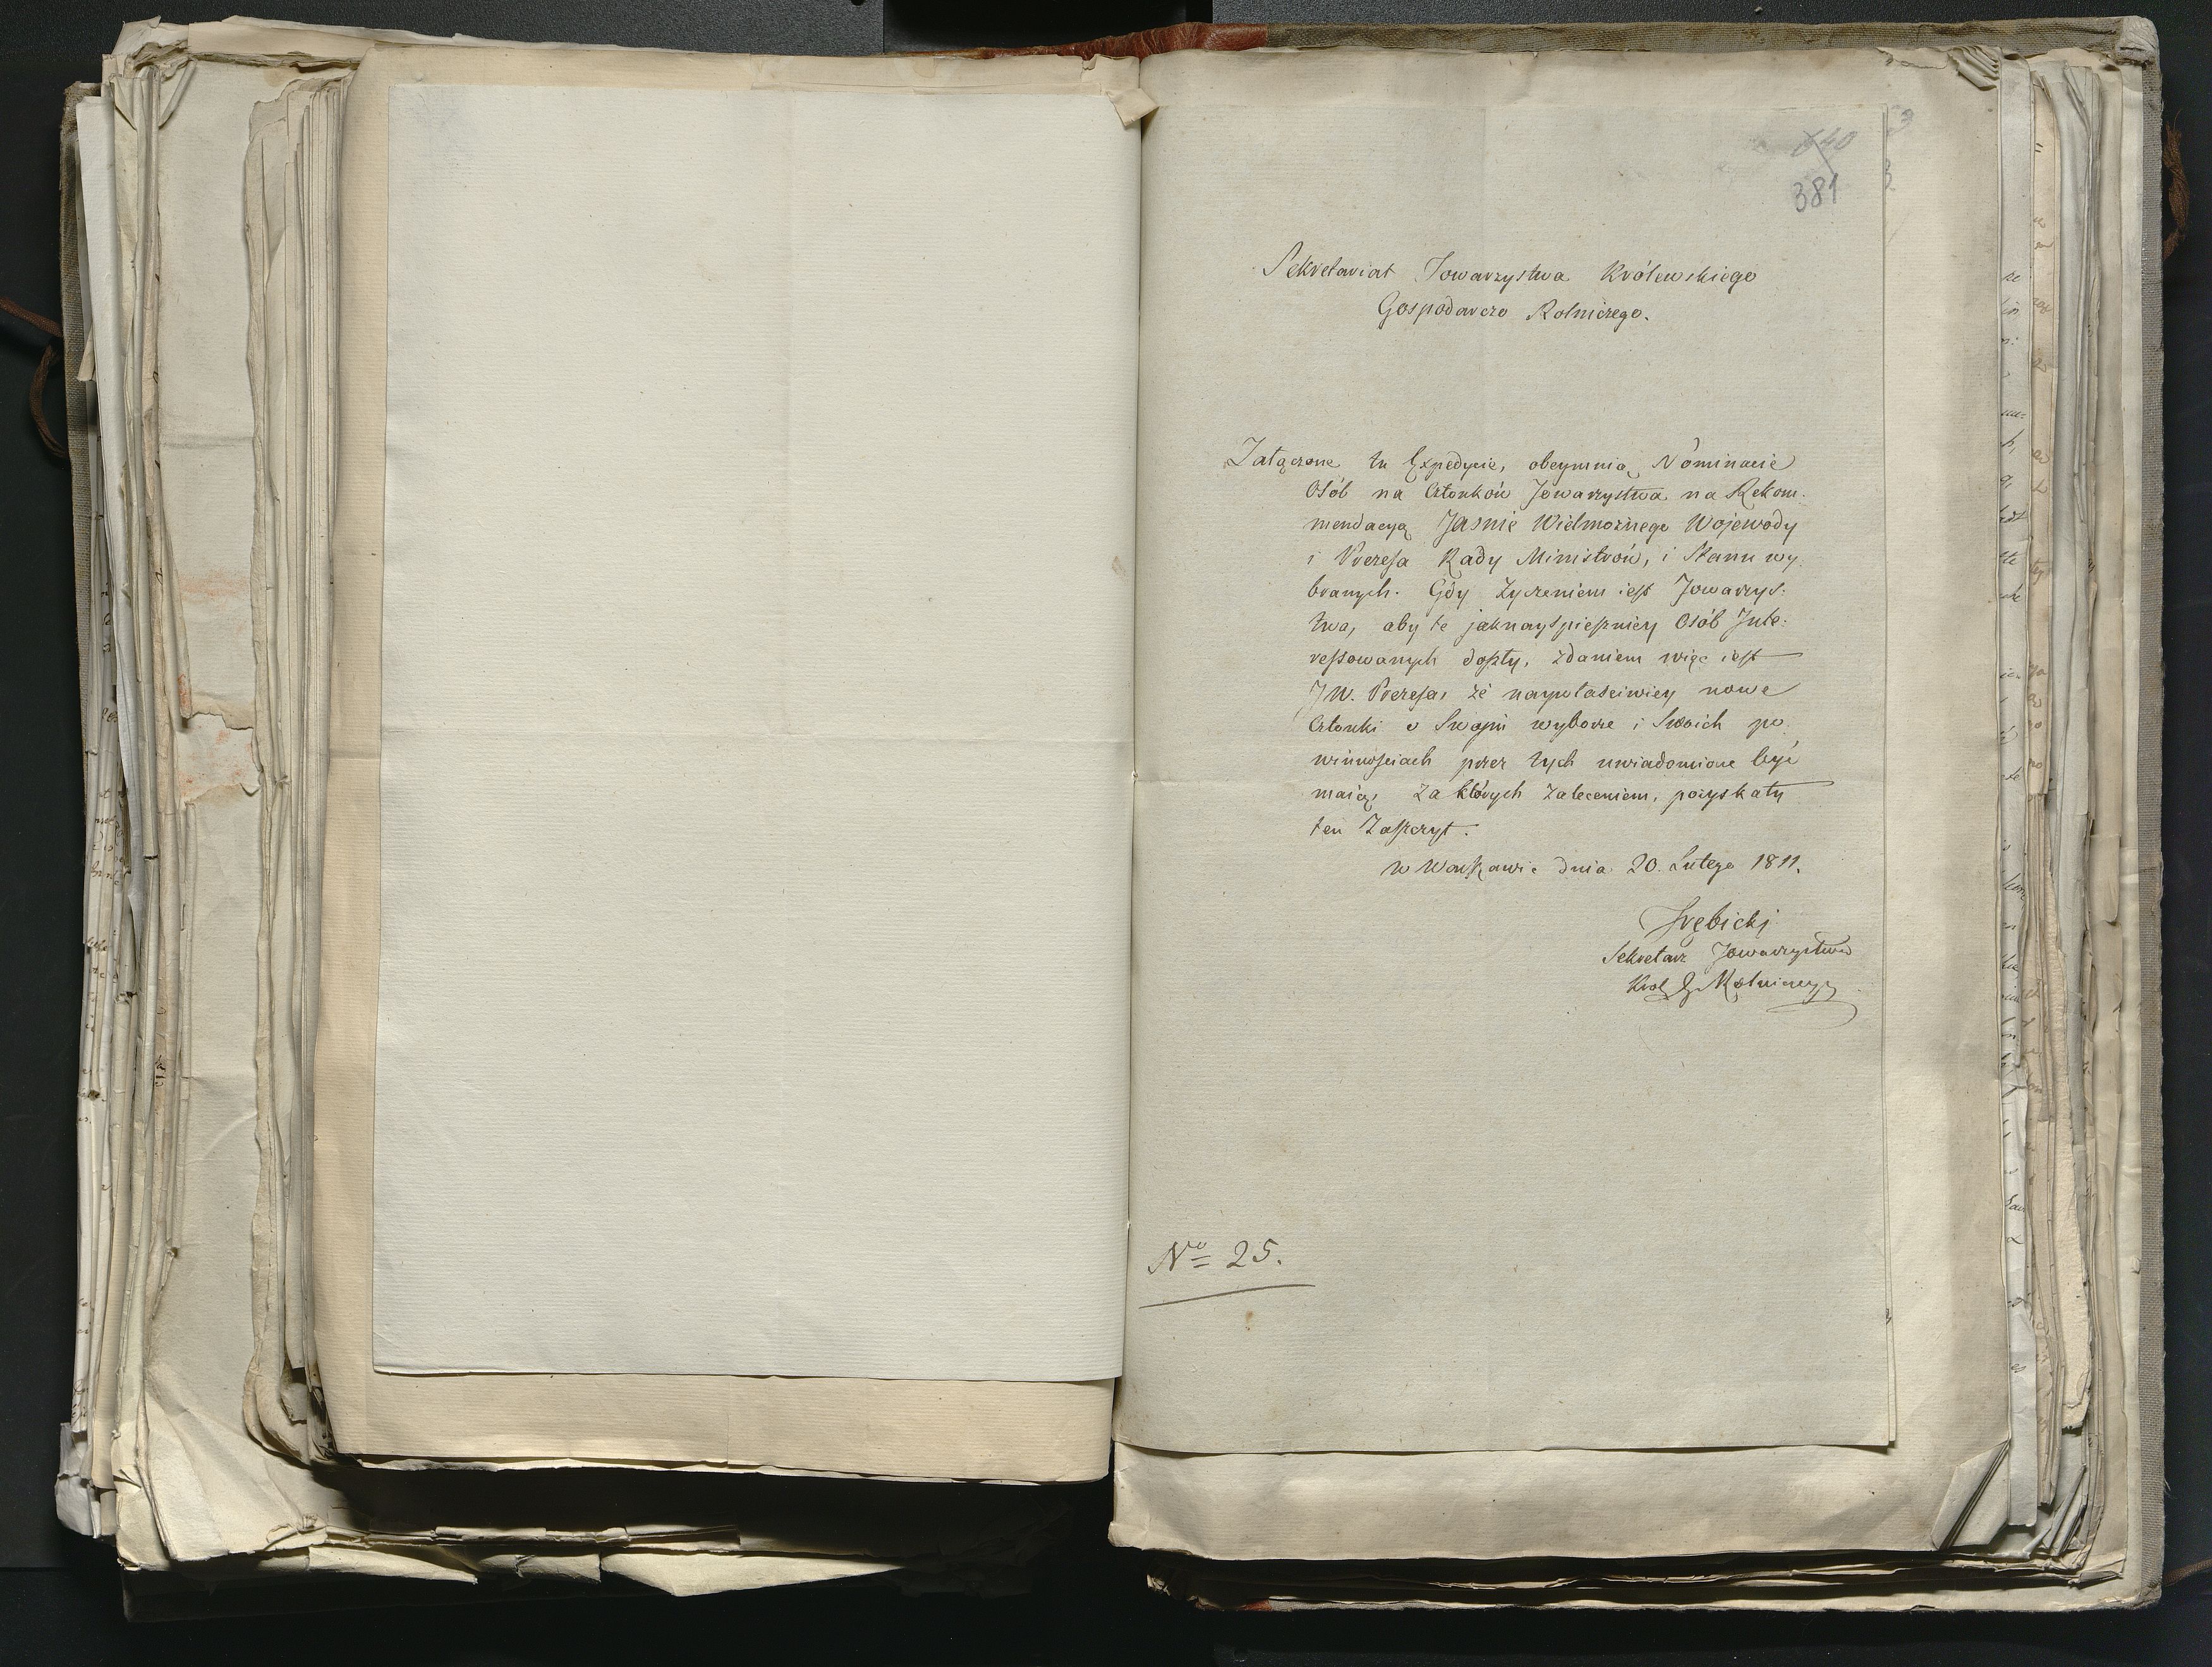 640
381
Sekretariat Towarzystwa Królewskiego
Gospodarczo Rolniczego.
Załączone tu Expedycie, obeymuią Nóminacie
Osób na Członków Towarzystwa na Rekom-
mendacyą Jaśnie Wielmożnego Wojewody
i Prezesa Rady Ministrów, i Stanu wy-
branych. Gdy Życzeniem iest Towarzys-
twa, aby te jaknayśpieszniey Osób Inte-
ressowanych doszły, zdaniem więc iest
JW. Prezesa, że naywłaściwiey nowe
Członki o Swojm wyborze i Swoich po-
winnościach przez tych uwiadomione być
maią, za których zaleceniem, pozyskały
ten Zaszczyt.
w Warszawie dnia 20. Lutego 1811.
Trębicki
Sekretarz Towarzystwa
Król G. Rolniczego
No 25.